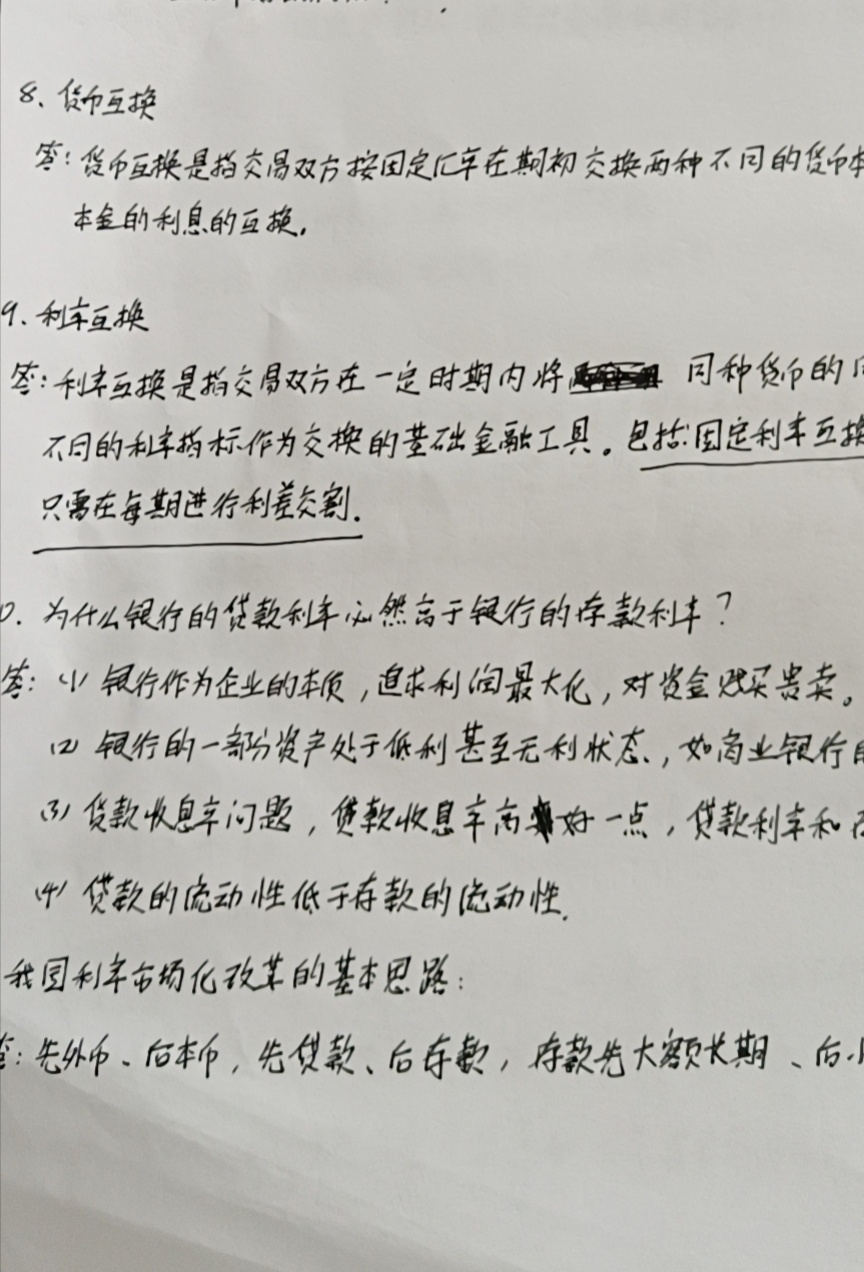 8、货币互换
答：货币互换是指交易双方按固定汇率在期初交换两种不同的货币本
本金的利息的互换。
9．利率互换
答：利率互换是指交易双方在一定时期内将 同种货币的
不同的利率指标作为交换的基础金融工具。包括：固定利率互换
只需在每期进行利差交割．
0．为什么银行的贷款利率必然高于银行的存款利率？
答：(1) 银行作为企业的本质，追求利润最大化，对资金贱买贵卖。
(2) 银行的一部分资产处于低利甚至无利状态，如商业银行
(3) 贷款收息率问题，贷款收息率高 好一点，贷款利率和
(4) 贷款的流动性低于存款的流动性．
我国利率市场化改革的基本思路：
答：先外币、后本币，先贷款、后存款，存款先大额长期、后小